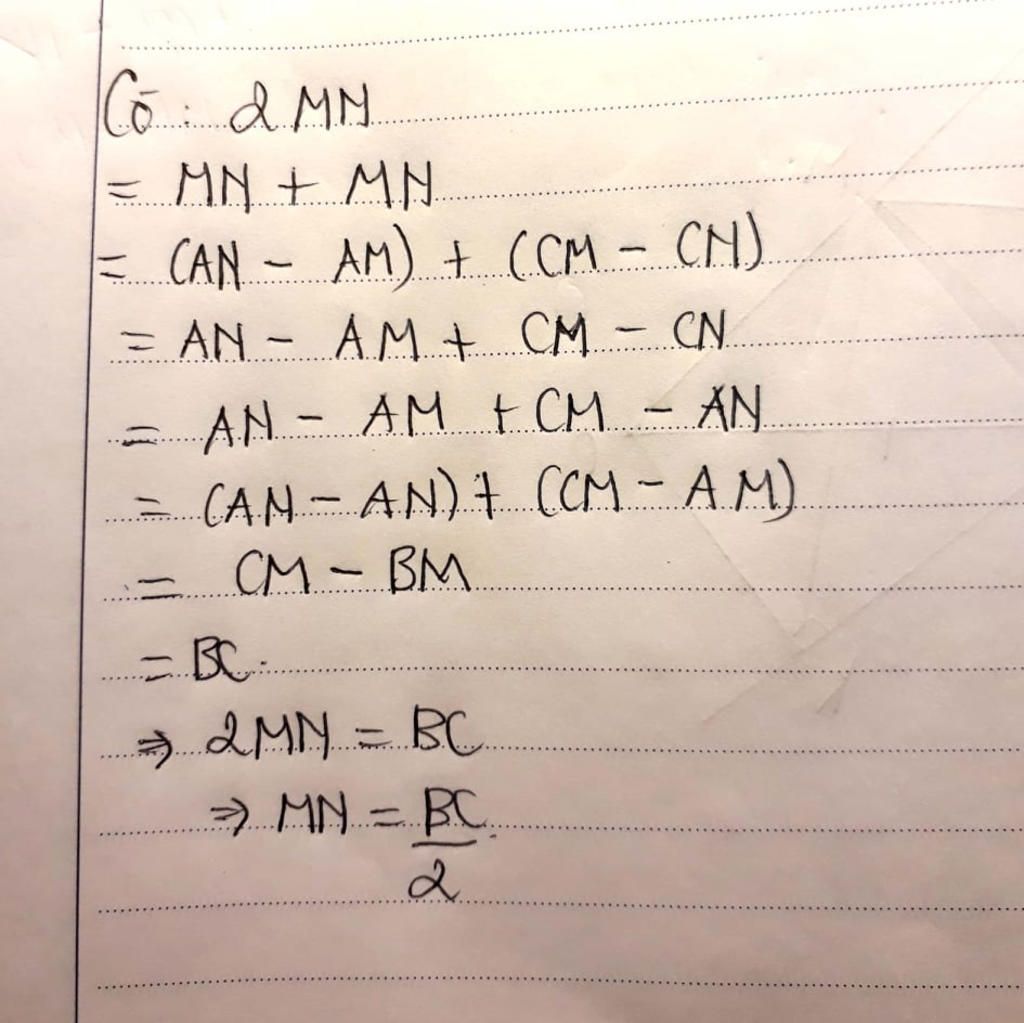 Có: 2MN
= MN + MN
= (AN - AM) + (CM - CN)
= AN - AM + CM - CN
= AN - AM + CM - AN
= (AN - AN) + (CM - AM)
= CM - BM
= BC.
⇒ 2MN = BC
⇒ MN = BC
2